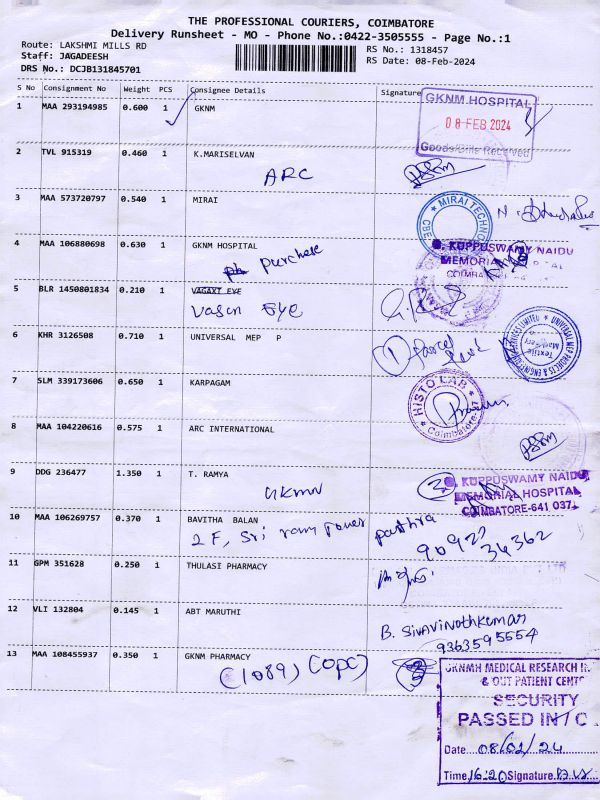 THE PROFESSIONAL COURIERS, COIMBATORE
Delivery Runsheet - MO - Phone No.:0422-3505555 - Page No.:1
Route: LAKSHMI MILLS RD
Staff: JAGADEESH
DRS No.: DCJB131845701
RS No.: 1318457
RS Date: 08-Feb-2024
S No Consignment No Weight PCS Consignee Details Signature
1 MAA 293194985 0.600 1 GKNM
GKNM HOSPITAL
08 FEB 2024
Goods/Bills Received
2 TVL 915319 0.460 1 K.MARISELVAN
ARC
3 MAA 573720797 0.540 1 MIRAI
MIRAI TECHNO
CBE
4 MAA 106880698 0.630 1 GKNM HOSPITAL
purchase
KUPPUSWAMY NAIDU
MEMORIAL
COIMBA
5 BLR 1450801834 0.210 1 VAGAXT EYE
Vasan Eye
6 KHR 3126508 0.710 1 UNIVERSAL MEP P
1 parcel
UNIVERSAL MEP PROJECTS & ENGINEERING SERVICES LIMITED
Textile
7 SLM 339173606 0.650 1 KARPAGAM
HISTO LAB
Coimbatore-27
8 MAA 104220616 0.575 1 ARC INTERNATIONAL
9 DDG 236477 1.350 1 T. RAMYA
GKMN
KUPPUSWAMY NAIDU
MEMORIAL HOSPITAL
COIMBATORE-641 037
10 MAA 106269757 0.370 1 BAVITHA BALAN
2 F, Sri ram Tower
11 GPM 351628 0.250 1 THULASI PHARMACY
12 VLI 132804 0.145 1 ABT MARUTHI
B. Sivavinothkumar
9363595554
13 MAA 108455937 0.350 1 GKNM PHARMACY
(1089) (OPC)
GKNMH MEDICAL RESEARCH
& OUT PATIENT CENT
SECURITY
PASSED IN / O
Date 08/02/24
Time 16:20 Signature